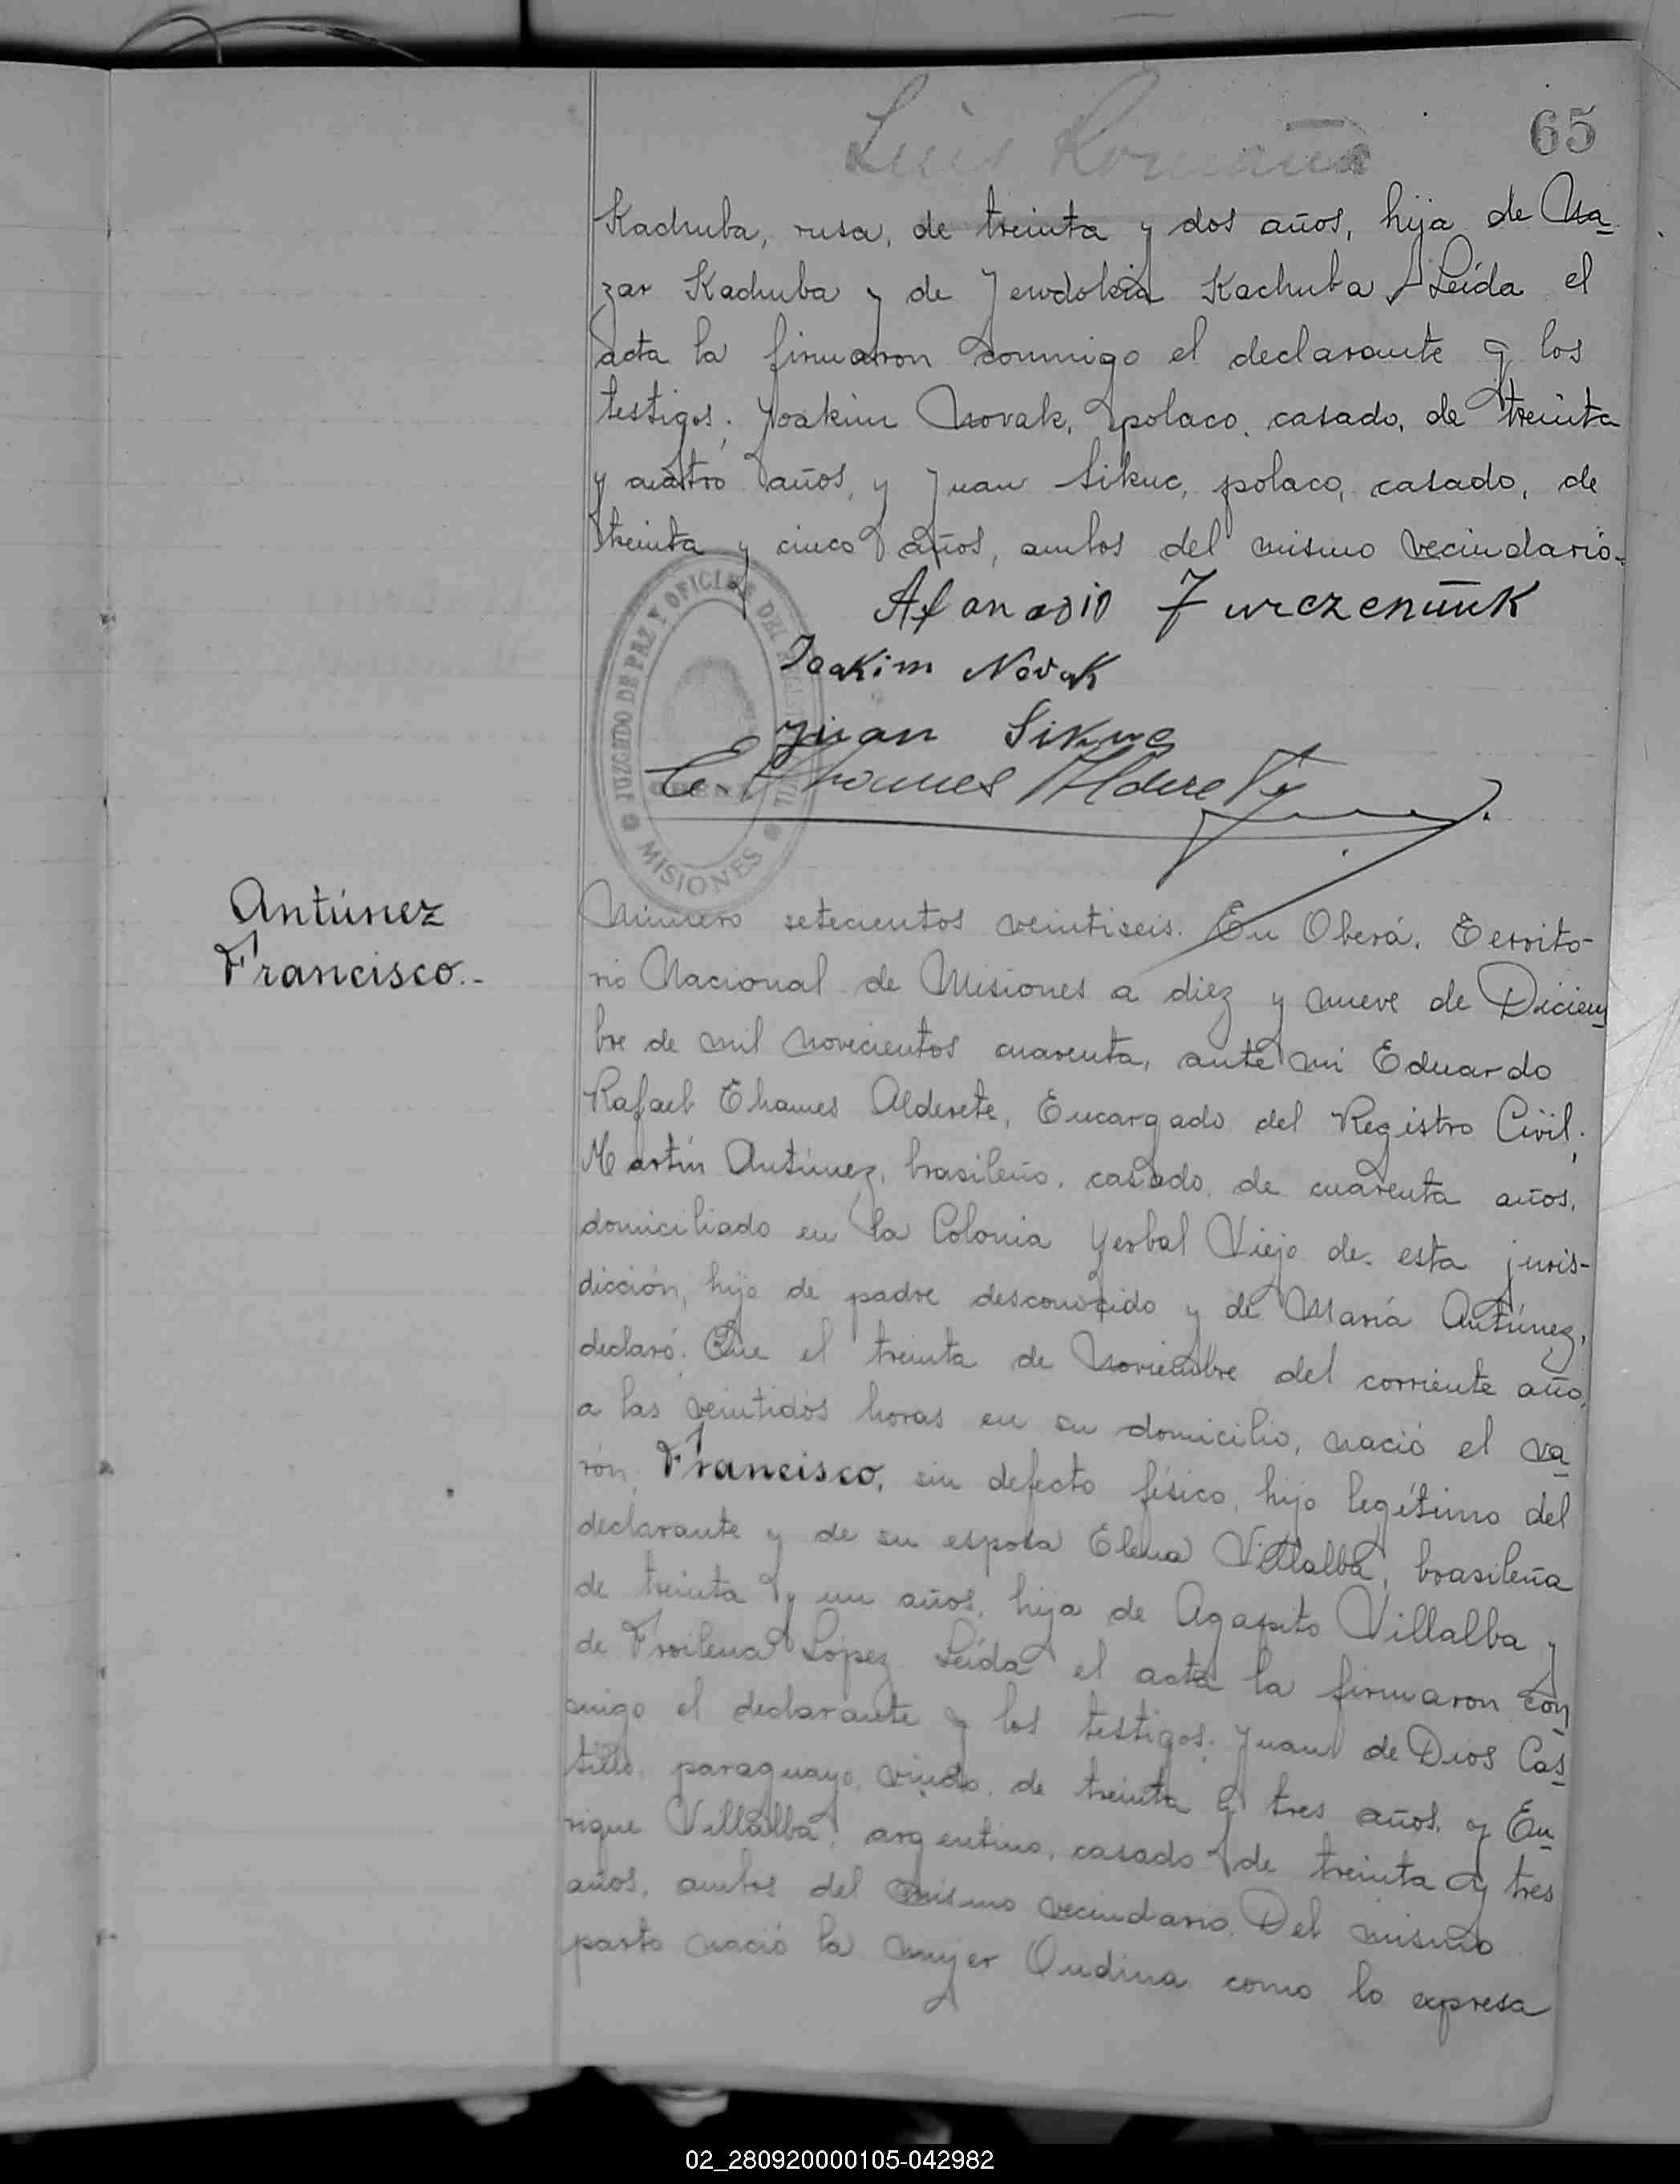 65
Luis Romaña
Kachuba, rusa, de treinta y dos años, hija de Na-
zar Kachuba y de Jewdokia Kachuba Leída el
acta la firmaron conmigo el declarante y los
testigos: Joakim Novak, polaco, casado, de treinta
y cuatro años, y Juan Sikuc, polaco, casado, de
treinta y cinco años, ambos del mismo vecindario.-
JUZGADO DE PAZ Y OFICINA DEL REGISTRO CIVIL
MISIONES
Joakim Novak
Juan Sikuc
E. Thames Alderete
Antúnez
Francisco.-
Número setecientos veintiseis. En Oberá, Territo-
rio Nacional de Misiones a diez y nueve de Diciem-
bre de mil novecientos cuarenta, ante mi Eduardo
Rafael Thames Alderete, Encargado del Registro Civil;
Martín Antúnez, brasileño, casado, de cuarenta años,
domiciliado en la Colonia Yerbal Viejo de esta juris-
dicción, hijo de padre desconocido y de María Antúnez,
declaró: Que el treinta de Noviembre del corriente año,
a las veintidós horas en su domicilio, nació el va-
rón, Francisco, sin defecto físico, hijo legítimo del
declarante y de su esposa Elena Villalba, brasileña
de treinta y un años, hija de Agapito Villalba y
de Froilena López Leída el acta la firmaron con-
migo el declarante y los testigos: Juan de Dios Cas-
tillo, paraguayo, viudo, de treinta y tres años, y En-
rique Villalba, argentino, casado de treinta y tres
años, ambos del mismo vecindario. Del mismo
parto nació la mujer Ondina como lo expresa
02_280920000105-042982